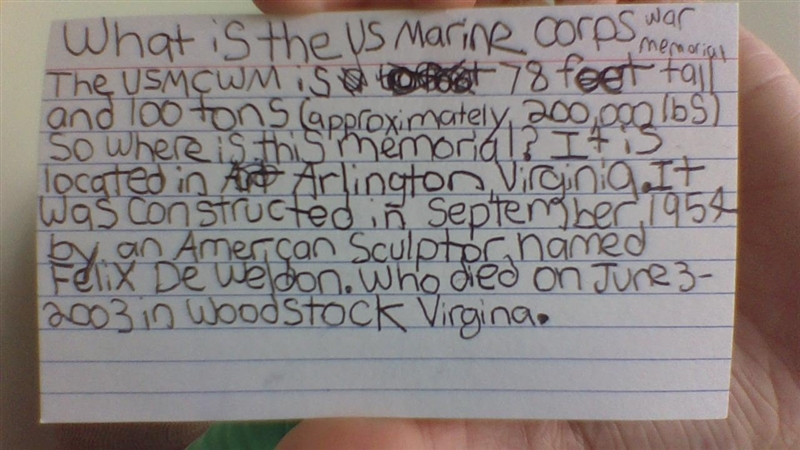 What is the US Marine Corps war memorial
The USMCWM is 78 feet tall
and 100 tons (approximately, 200,000 lbs)
So where is this memorial? It is
located in Arlington Virginia. It
was constructed in September, 1954
by an American Sculptor, named
Felix De Weldon. Who died on June 3-
2003 in Woodstock Virgina.